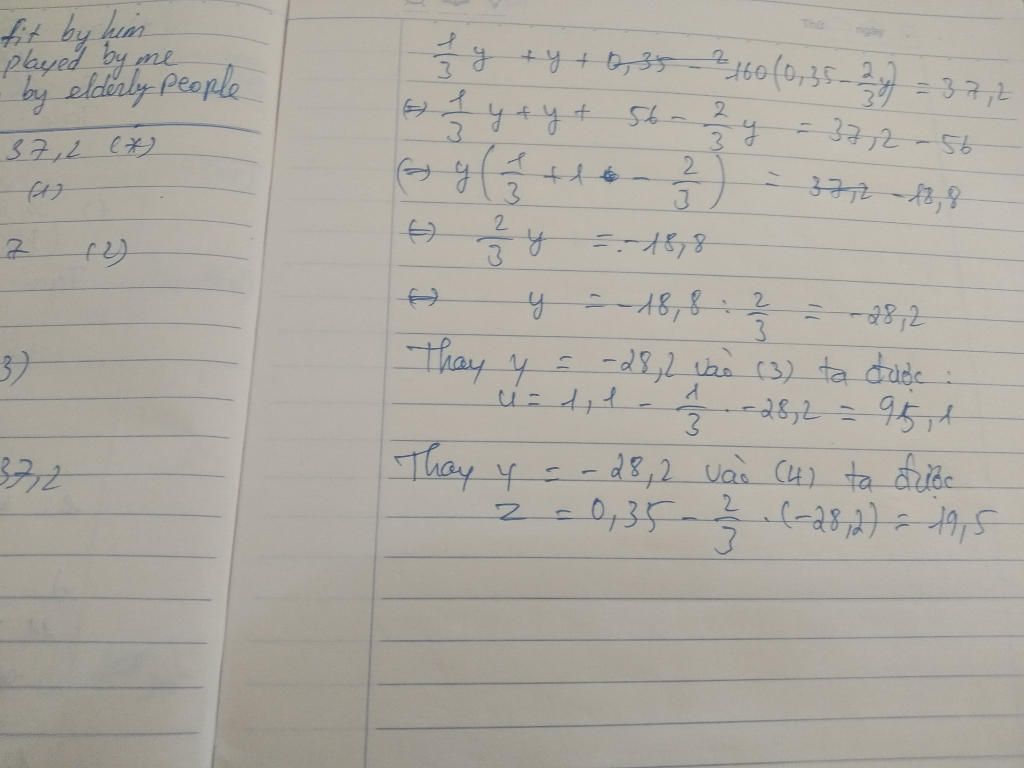 fit by him
played by me
by elderly people
37,2 (*)
(1)
7 (2)
3)
37,2
Thứ ngày
1/3 y + y + 0,35 - 2 160(0,35 - 2/3 y) = 37,2
⇔ 1/3 y + y + 56 - 2/3 y = 37,2 - 56
⇔ y(1/3 + 1 - 2/3) = 37,2 -18,8
⇔ 2/3 y = -18,8
⇔ y = -18,8 : 2/3 = -28,2
Thay y = -28,2 vào (3) ta được :
x = 1,1 - 1/3 . -28,2 = 95,1
Thay y = -28,2 vào (4) ta được
z = 0,35 - 2/3 . (-28,2) = 19,5